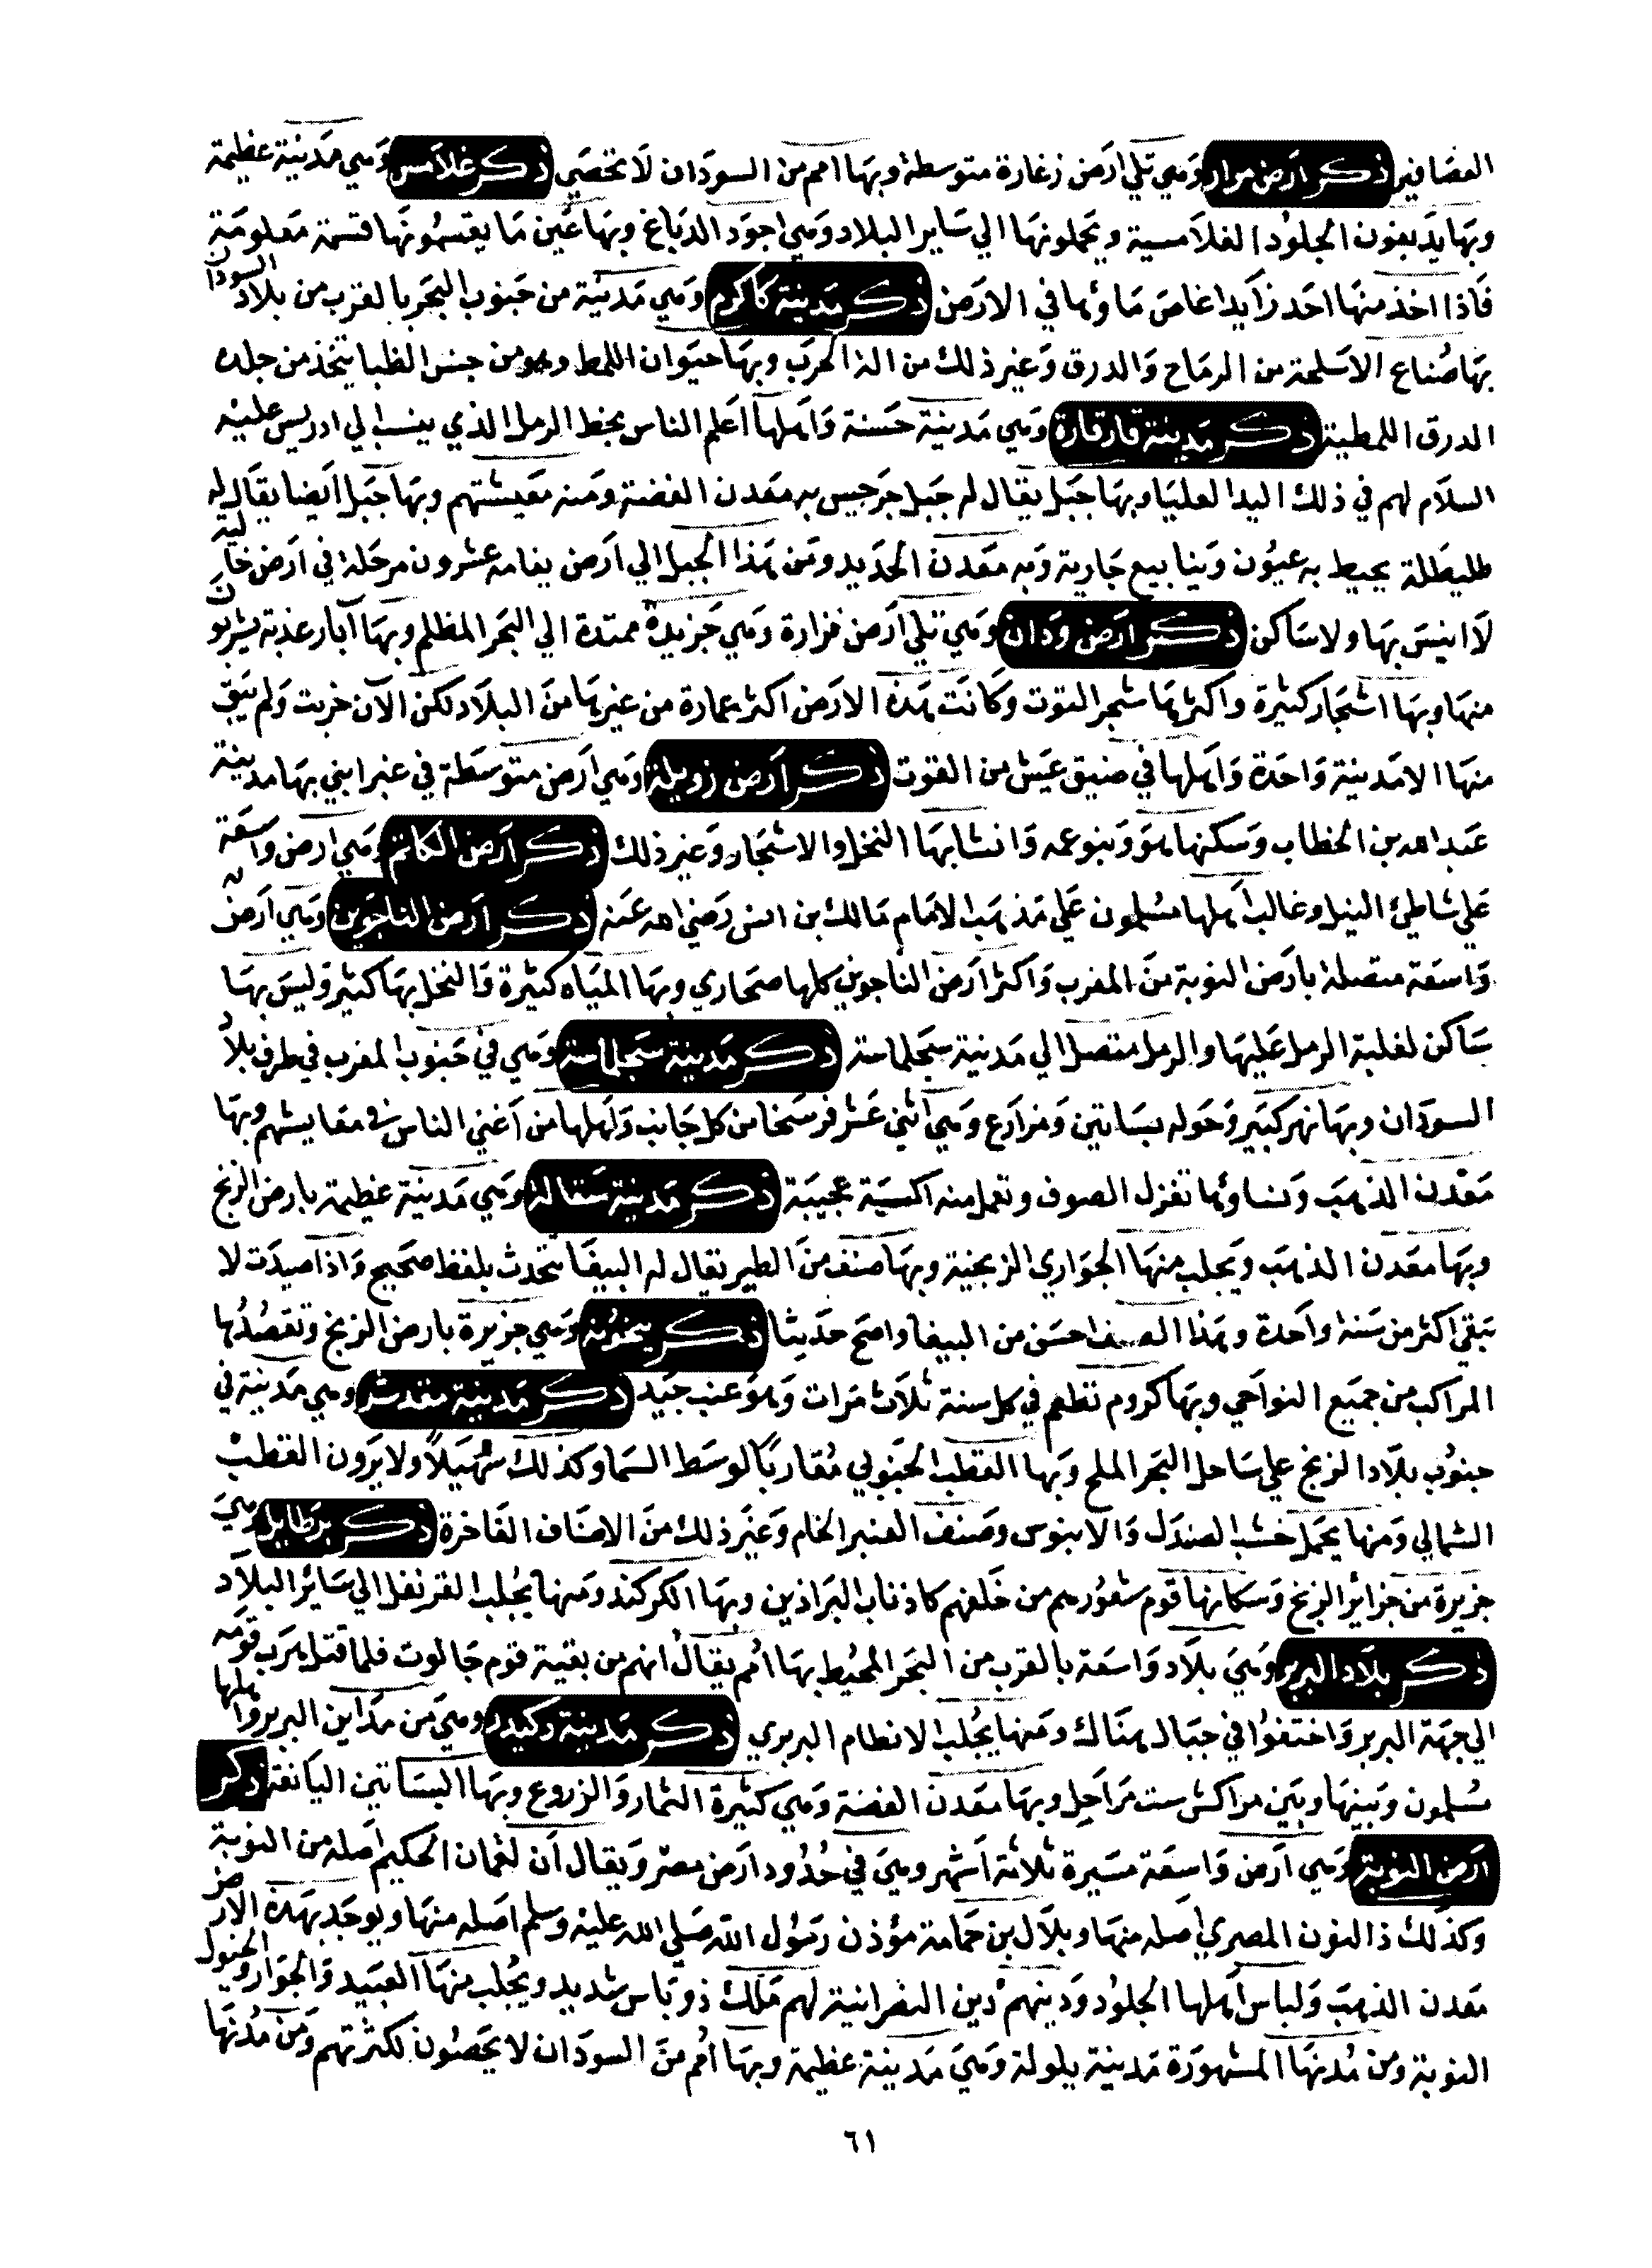 العصافير ذكر ارض مراد وهي تلي ارض زغارة متوسطة وبها امم من السودان لا تحصي ذكر غلامس وهي مدينة عظيمة
وبها يدبغون الجلود الغلامسية ويحملونها الي ساير البلاد وهي اجود الدباغ وبها عين ما يقسمونها قسمة معلومة
فاذا اخذ منها احد زايدا غاص ماوها في الارض ذكر مدينة كاكرم وهي مدينة من جنوب البحر بالقرب من بلاد السودان
بها صناع الاسلحة من الرماح والدرق وغير ذلك من الة الحرب وبها حيوان اللمط وهو من جنس الظبا يتخذ من جلده
الدرق اللمطية ذكر مدينة قارقارة وهي مدينة حسنة واهلها اعلم الناس بخط الرمل الذي ينسب الي ادريس عليه
السلام لهم في ذلك اليد العليا وبها جبل يقال له جبل جرجيس به معدن الفضة ومنه معيشتهم وبها جبل ايضا يقال له
طليطلة يحيط به عيون وينابيع جارية وبه معدن الحديد ومن هذا الجبل الي ارض يغامه عشرون مرحلة في ارض خالية
لا انيس بها ولا ساكن ذكر ارض ودان وهي تلي ارض فزارة وهي جزيدة ممتدة الي البحر المظلم وبها آبار عذبة يشربون
منها وبها اشجار كثيرة واكثرها شجر التوت وكانت هذه الارض اكثر عمارة من غيرها من البلاد لكن الآن خربت ولم يبق
منها الا مدينة واحدة واهلها في ضيق عيش من القوت ذكر ارض زويلة وهي ارض متوسطة في غبر ابني بها مدينة
عبد الله بن الخطاب وسكنها هو وبنو عمه وانشا بها النخل والاشجار وغير ذلك ذكر ارض الكانم وهي ارض واسعة
علي شاطئ النيل وغالب اهلها مسلمون علي مذهب الامام مالك بن انس رضي الله عنه ذكر ارض التاجوين وهي ارض
واسعة متصلة بارض النوبة من المغرب واكثر ارض التاجوين كلها صحاري وبها المياه كثيرة والنخل بها كثير وليس بها
ساكن لغلبة الرمل عليها والرمل متصل الي مدينة سجلماسة ذكر مدينة سجلماسة وهي في جنوب المغرب في طرف بلاد
السودان وبها نهر كبير وحوله بساتين ومزارع وهي اثني عشر فرسخا من كل جانب واهلها من اغني الناس في معايشهم وبها
معدن الذهب ونساوها تغزل الصوف وتعمل منه اكسية عجيبة ذكر مدينة سفالة وهي مدينة عظيمة بارض الزنج
وبها معدن الذهب ويجلب منها الجواري الزنجية وبها صنف من الطير يقال له الببغا تتحدث بلفظ صحيح واذا صيدت لا
تبقي اكثر من سنة واحدة وهذا الصنف احسن من الببغا واصح حديثا ذكر وهي جزيرة بارض الزنج وتقصدها
المراكب من جميع النواحي وبها كروم تطعم في كل سنة ثلاث مرات وهو عنب جيد ذكر مدينة مقدشو وهي مدينة في
جنوب بلاد الزنج علي ساحل البحر الملح وبها القطب الجنوبي مقاربا لوسط السما وكذلك سهيلا ولا يرون القطب
الشمالي ومنها يحمل خشب الصندل والابنوس وصنف العنبر الخام وغير ذلك من الاصناف الفاخرة ذكر برطايل وهي
جزيرة من جزائر الزنج وسكانها قوم شعورهم من خلفهم كاذناب البراذين وبها الكركند ومنها يجلب القرنفل الي سائر البلاد
ذكر بلاد البربر وهي بلاد واسعة بالقرب من البحر المحيط بها امم يقال انهم من بقية قوم جالوت فلما قتل هرب قومه
الي جهة البربر واختفوا في جبال هناك ومنها يجلب الانطام البربري ذكر مدينة دكيدد وهي من مداين البربر واهلها
مسلمون وبينها وبين مراكش ست مراحل وبها معدن الفضة وهي كثيرة الثمار والزروع وبها البساتين اليانعة ذكر
ارض النوبة وهي ارض واسعة مسيرة ثلاثة اشهر وهي في حدود ارض مصر ويقال ان لقمان الحكيم اصله من النوبة
وكذلك ذا النون المصري اصله منها وبلال بن حمامة مؤذن رسول الله صلي الله عليه وسلم اصله منها ويوجد بهذه الارض
معدن الذهب ولباس اهلها الجلود ودينهم دين النصرانية لهم ملك ذو باس شديد ويجلب منها العبيد والجوار والخيول
النوبة ومن مدنها المشهورة مدينة يلولة وهي مدينة عظيمة وبها امم من السودان لا يحصون لكثرتهم ومن مدنها
٦١